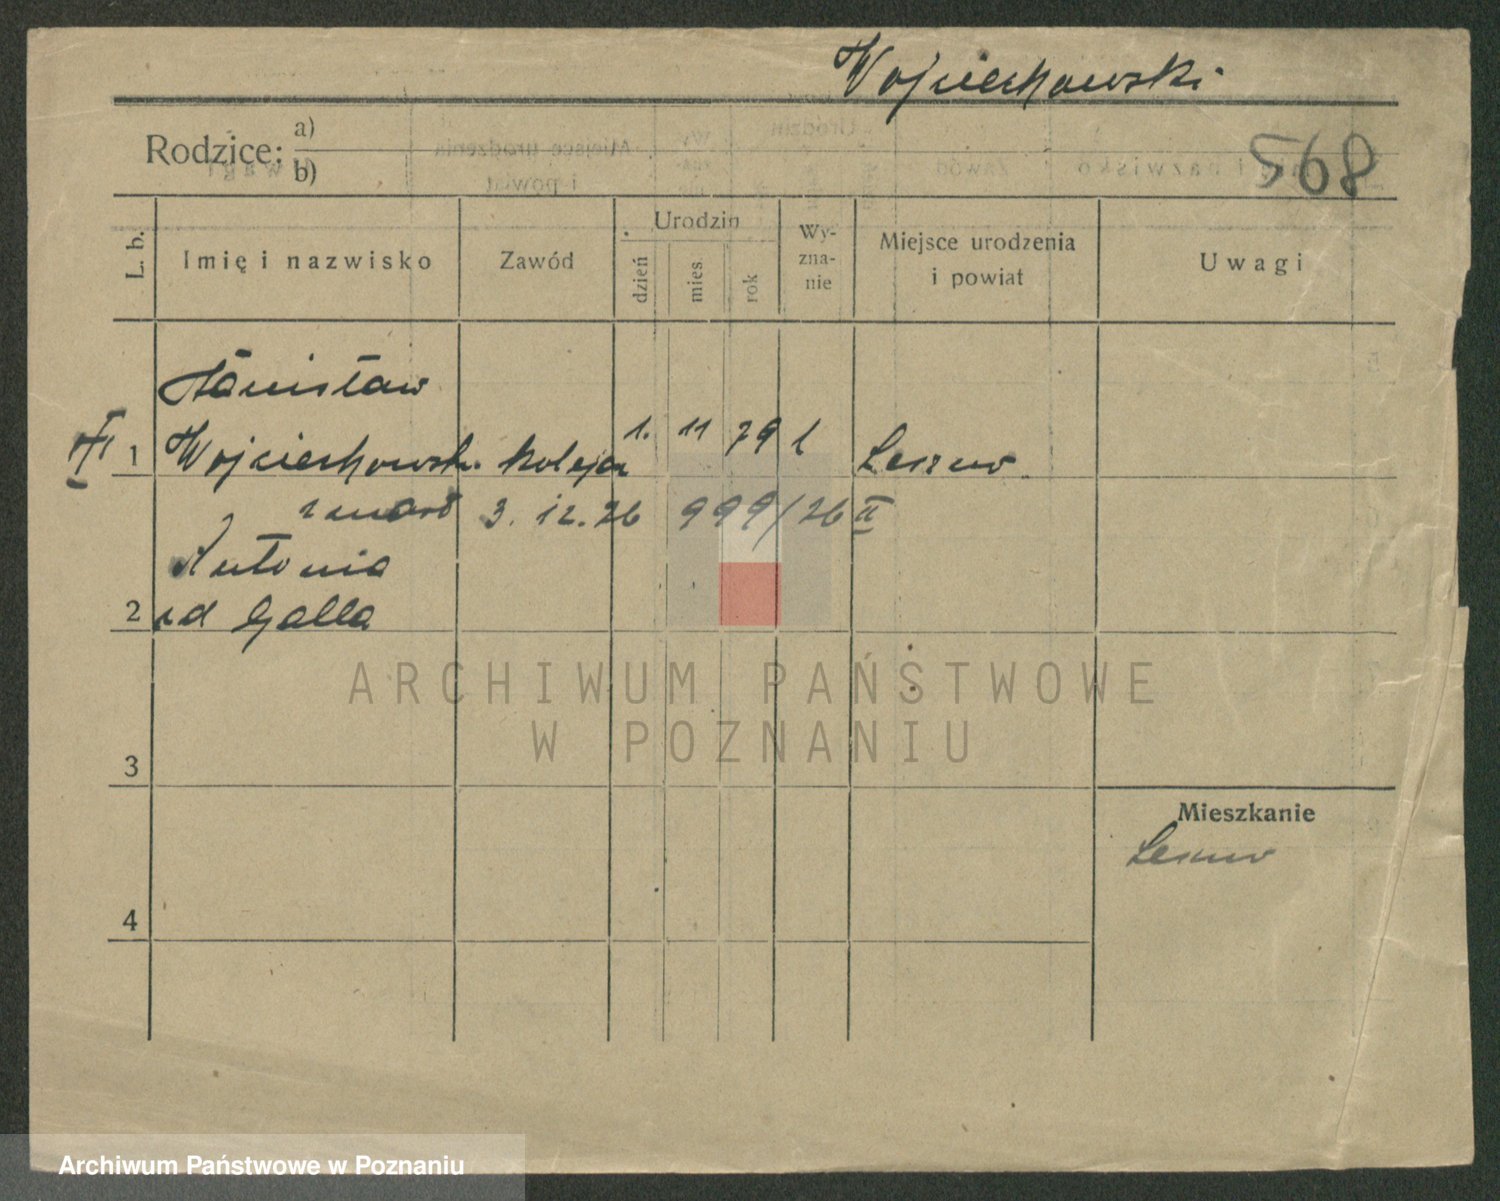 Wojciechowski
568
Rodzice: a)
b)
L. b.
Imię i nazwisko
Zawód
Urodzin
dzień
mies.
rok
Wy-
zna-
nie
Miejsce urodzenia
i powiat
Uwagi
Stanisław
1 Wojciechowski kolejarz 1. 11 79 Leszno
zmarł 3. 12. 26 999/26 II
Antonia
2 zd Galla
ARCHIWUM PAŃSTWOWE
W POZNANIU
3
Mieszkanie
Leszno
4
Archiwum Państwowe w Poznaniu